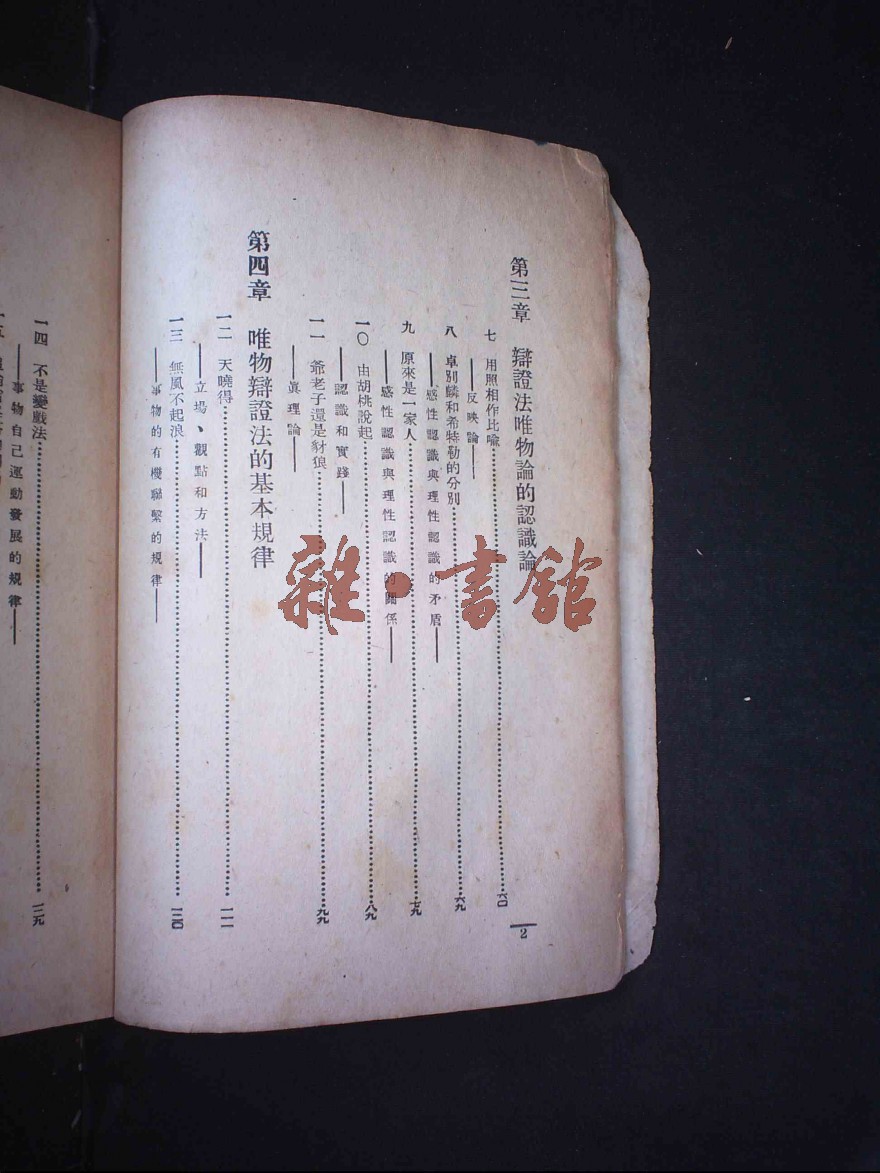 第三章　辯證法唯物論的認識論
七　用照相作比喩……六〇
——反映論——
八　卓別麟和希特勒的分別……六九
——感性認識與理性認識的矛盾——
九　原來是一家人……七九
——感性認識與理性認識的關係——
一〇　由胡桃說起……八九
——認識和實踐——
一一　爺老子還是豺狼……九九
——眞理論——
第四章　唯物辯證法的基本規律
一二　天曉得……一一一
——立場、觀點和方法——
一三　無風不起浪……一二〇
——事物的有機聯繫的規律——
2
一四　不是變戲法……一二九
——事物自己運動發展的規律——
一五
雜·書館